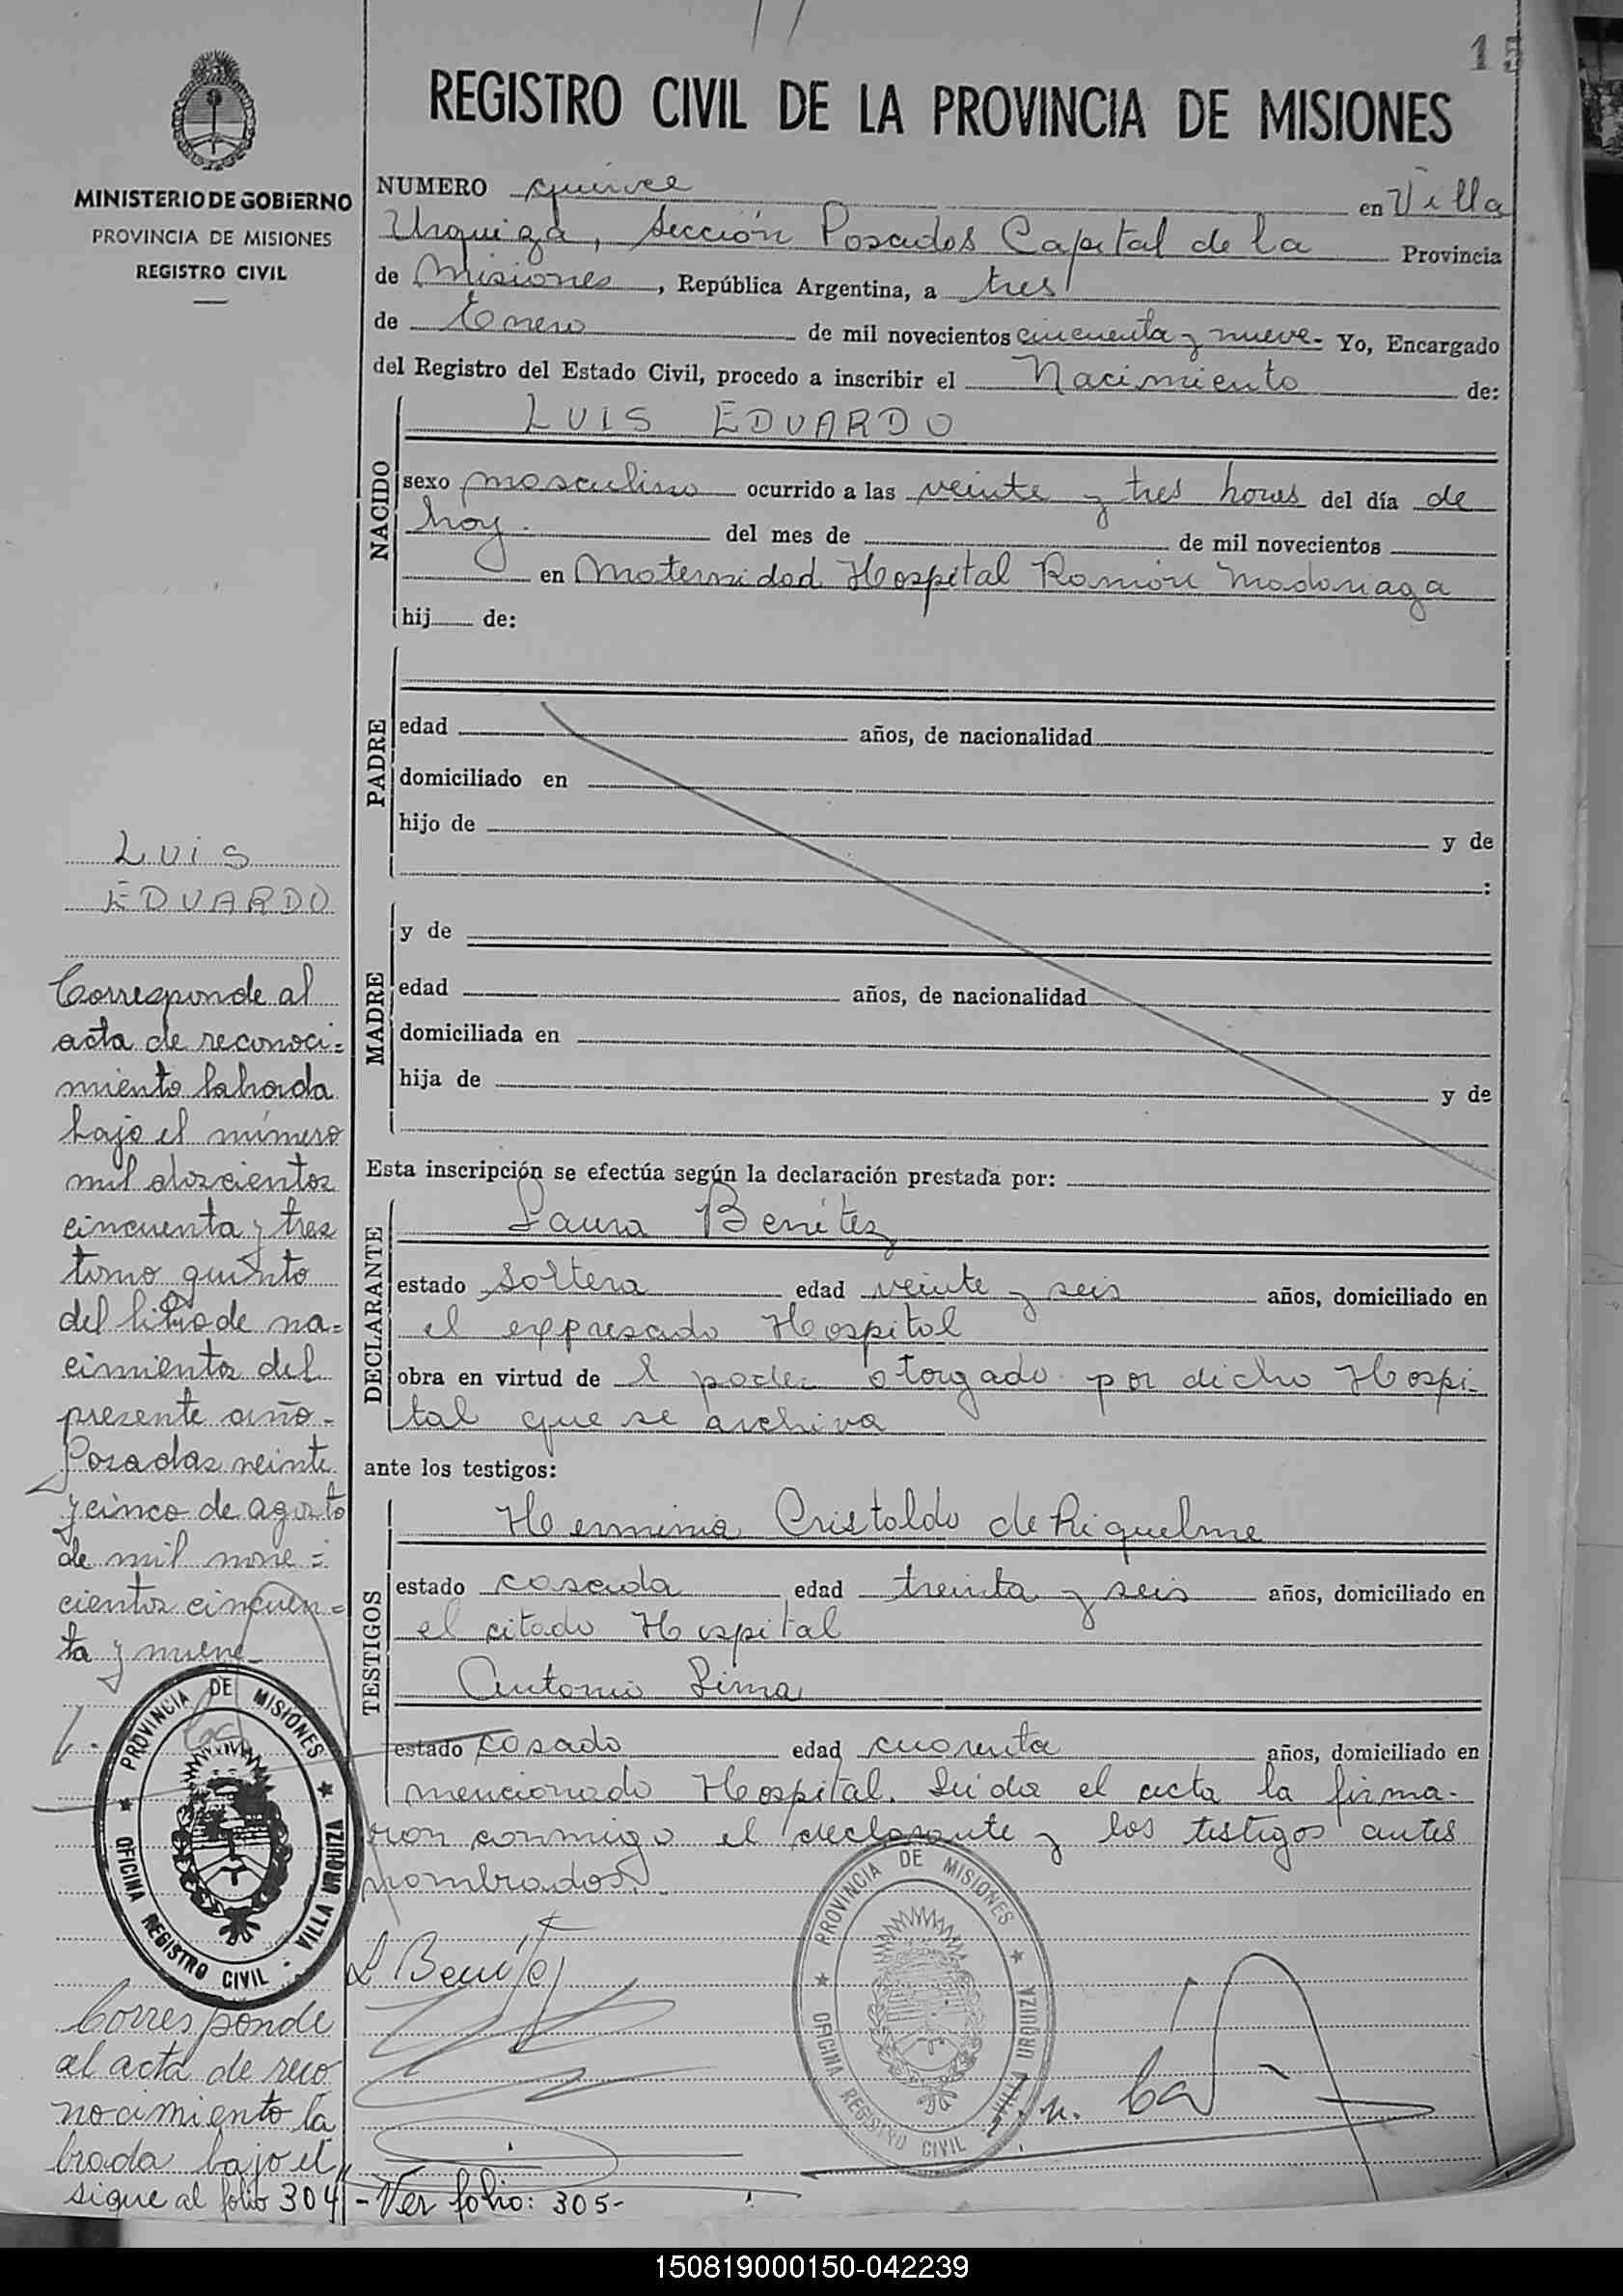 15
REGISTRO CIVIL DE LA PROVINCIA DE MISIONES
MINISTERIO DE GOBIERNO
PROVINCIA DE MISIONES
REGISTRO CIVIL
NUMERO quince en Villa
Urquiza, Sección Posadas Capital de la Provincia
de Misiones, República Argentina, a tres
de Enero de mil novecientos cincuenta y nueve. Yo, Encargado
del Registro del Estado Civil, procedo a inscribir el Nacimiento de:
NACIDO
LUIS EDUARDO
sexo masculino ocurrido a las veinte y tres horas del día de
hoy. del mes de de mil novecientos
en Maternidad Hospital Ramón Madariaga
hij de:
PADRE
edad años, de nacionalidad
domiciliado en
hijo de y de
:
MADRE
y de
edad años, de nacionalidad
domiciliada en
hija de y de
Esta inscripción se efectúa según la declaración prestada por:
DECLARANTE
Laura Benítez
estado Soltera edad veinte y seis años, domiciliado en
el expresado Hospital
obra en virtud de l poder otorgado por dicho Hospi-
tal que se archiva
ante los testigos:
TESTIGOS
Herminia Cristaldo de Riquelme
estado casada edad treinta y seis años, domiciliado en
el citado Hospital
Antonio Lima
estado casado edad cuarenta años, domiciliado en
mencionado Hospital. Leída el acta la firma-
ron conmigo el declarante y los testigos antes
nombrados.
L Benítez
PROVINCIA DE MISIONES
OFICINA REGISTRO CIVIL - VILLA URQUIZA
LUIS
EDUARDO
Corresponde al
acta de reconoci=
miento labrada
bajo el número
mil doscientos
cincuenta y tres
tomo quinto
del libro de na=
cimientos del
presente año-
Posadas veinte
y cinco de agosto
de mil nove=
cientos cincuen=
ta y nueve-
PROVINCIA DE MISIONES
OFICINA REGISTRO CIVIL - VILLA URQUIZA
Corresponde
al acta de reco
nocimiento la
brada bajo el
sigue al folio 304 - Ver folio: 305-
150819000150-042239